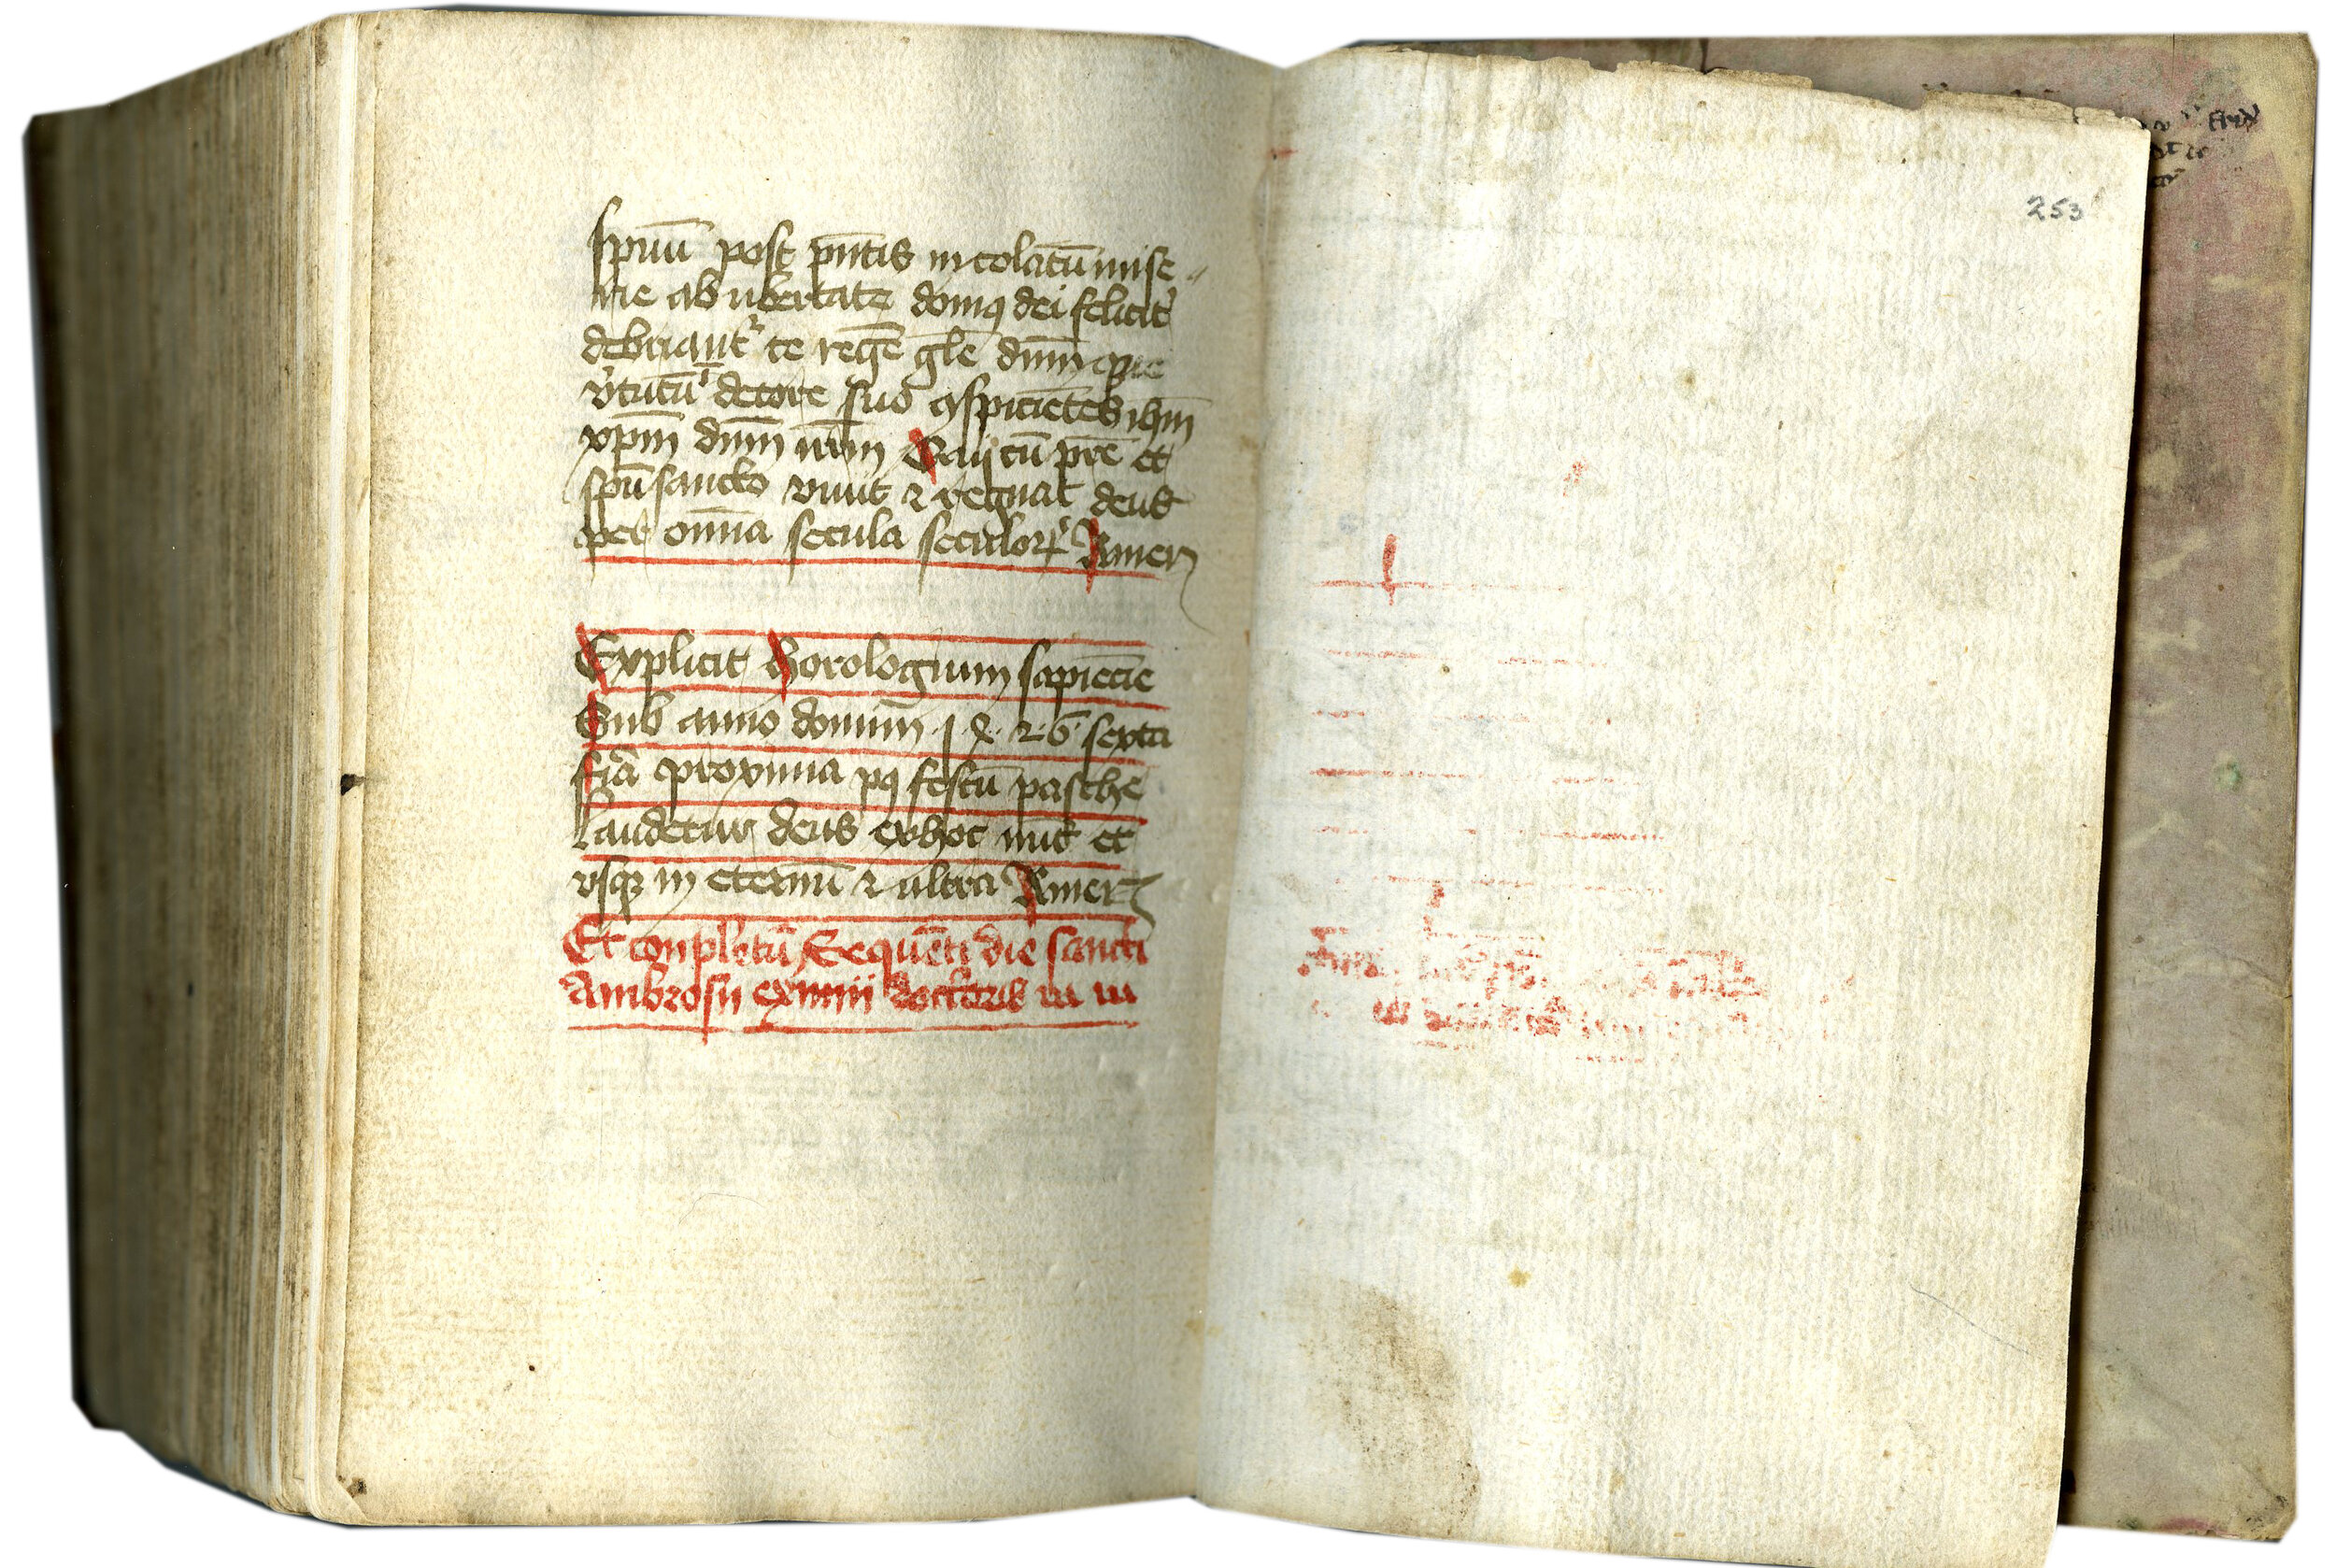 spūū post p̄ntis incolatū mise
rie ab ubertate domꝯ dei felicit̉
debriant᷑ te regē gl̄e dn̄m qꝫ
v̉tutū decore suo ꝯspiciētes ihm̄
xp̄m dn̄m nr̄m Qui cū pr̄e et
spū sancto viuit ⁊ regnat deus
ꝑ omīa secula seculoꝝ Amen
Explicit Horologium sapiēcie
Sub anno domini sexta
fīa proxima pꝯ festū pasche
laudetur deus ex hoc nūc et
vsqꝫ in eternū ⁊ ultra Amen
Et conpletū Sequēti die sancti
Ambrosii eximii doctoris
253